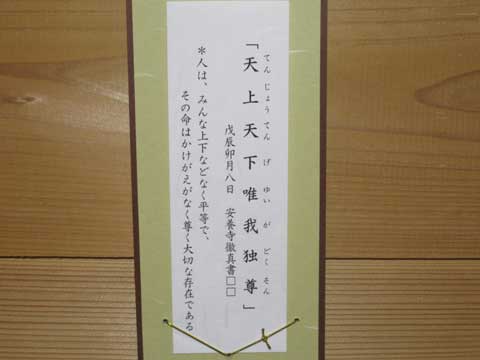 「天上天下唯我独尊」
てんじょうてんげゆいがどくそん
戊辰卯月八日 安養寺徹真書□□
＊人は、みんな上下などなく平等で、
その命はかけがえがなく尊く大切な存在である